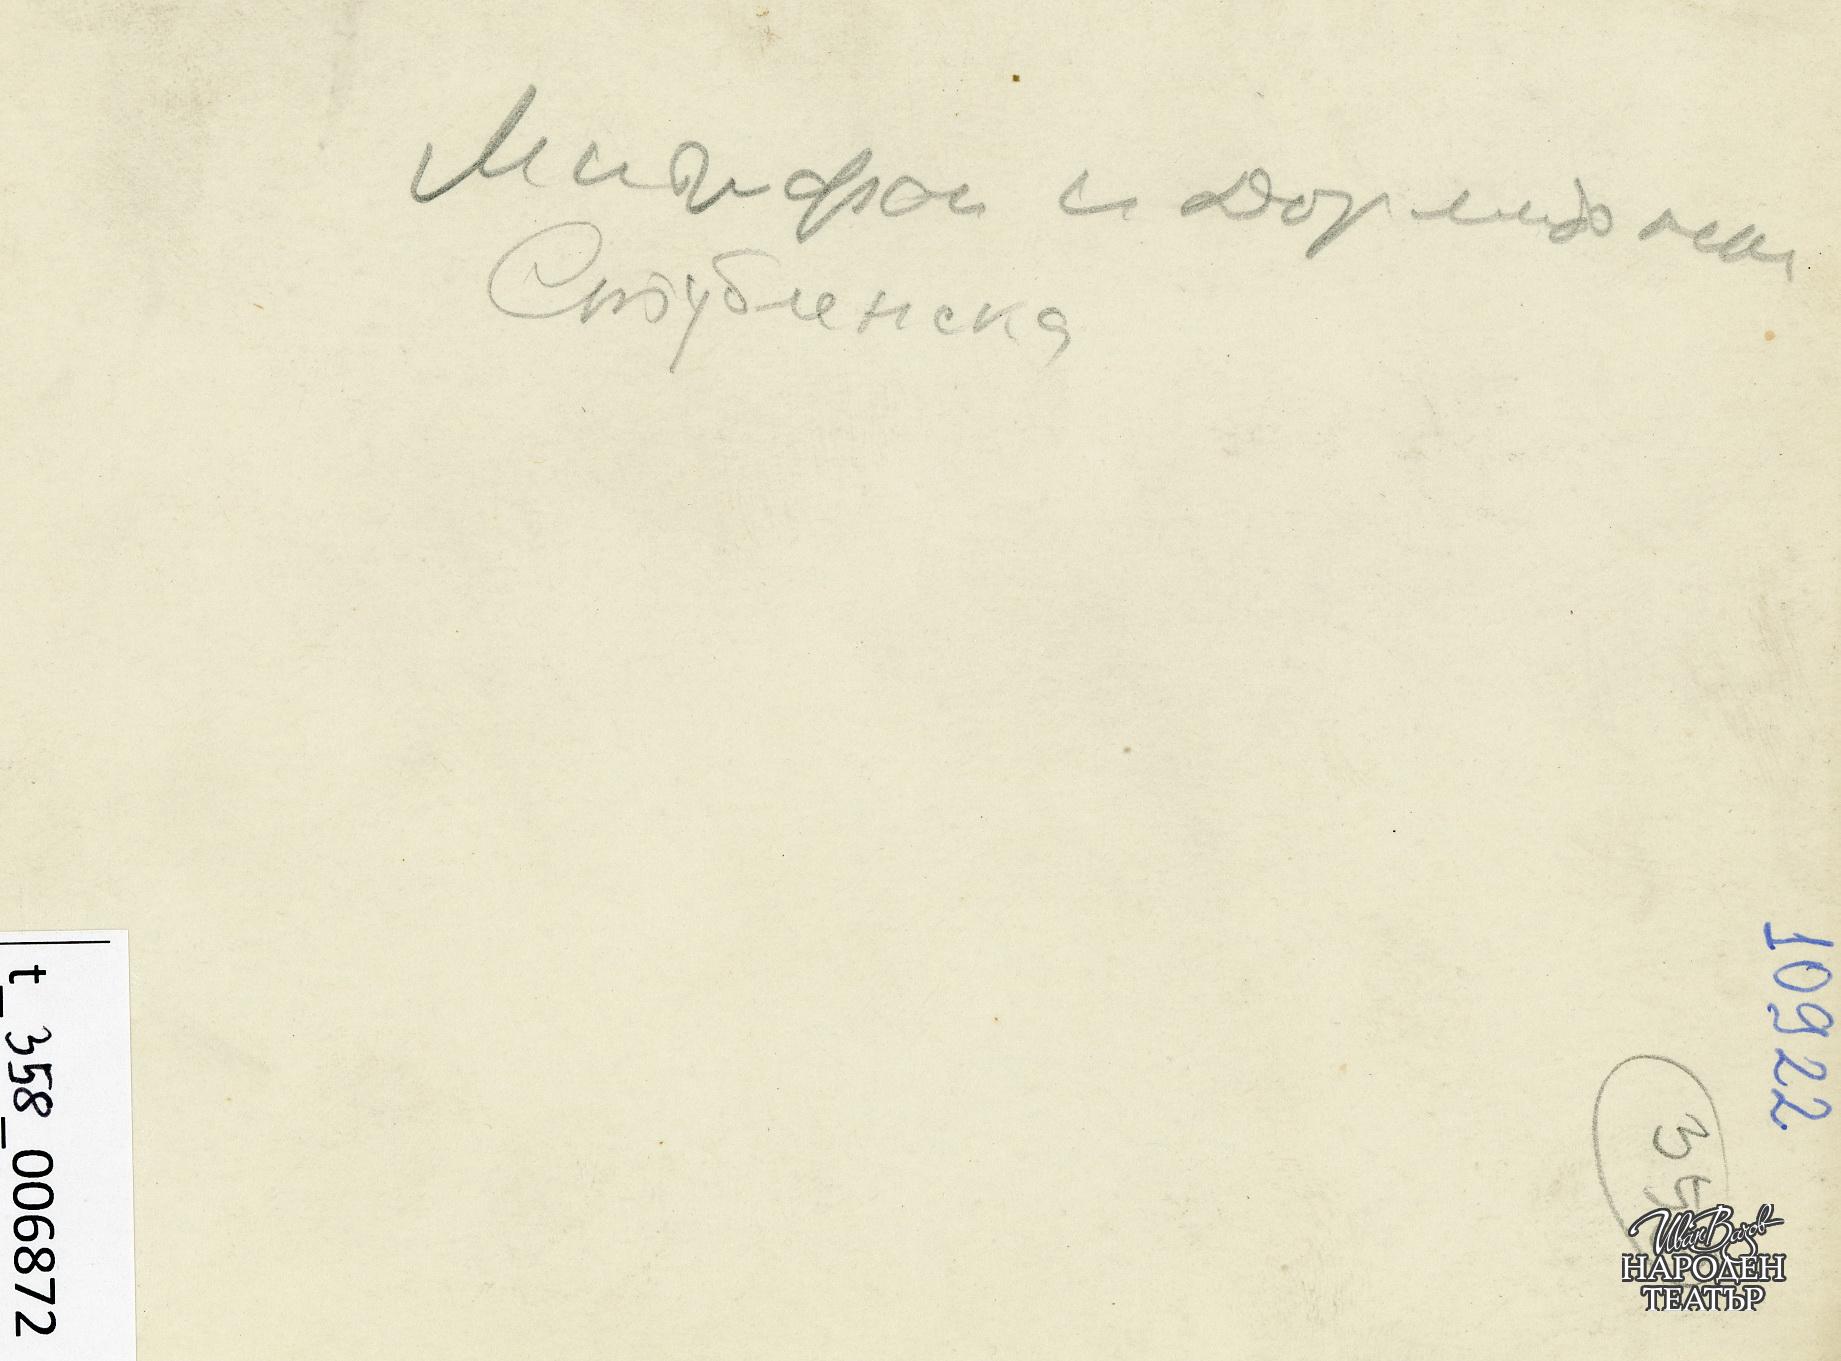 Митрофан и Дормидонт
Стубленска
10922
35
t_358_006872
Иван Вазов
НАРОДЕН
ТЕАТЪР